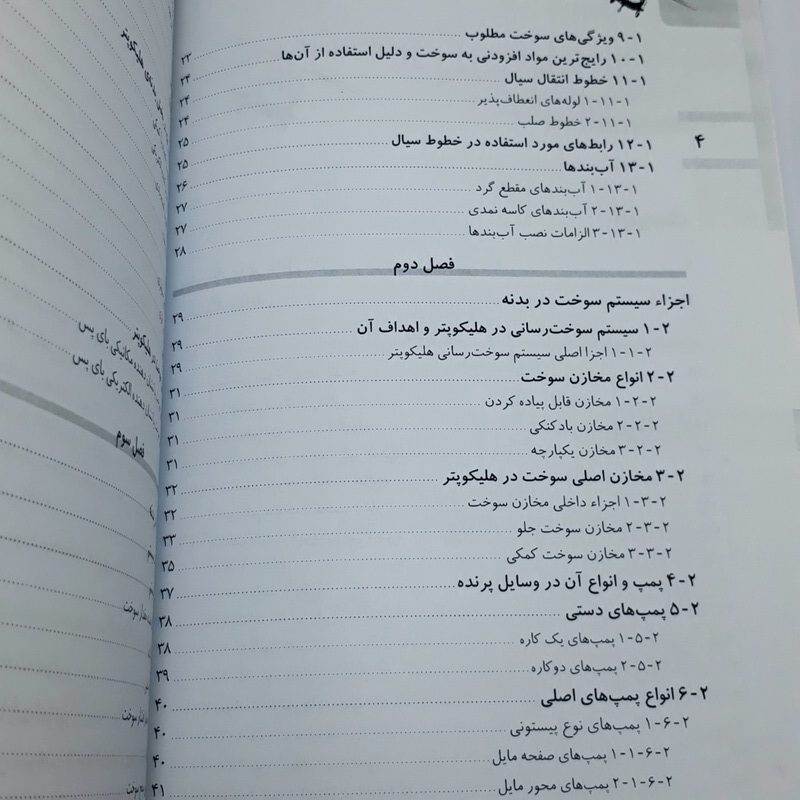 ۹-۱ ویژگی‌های سوخت مطلوب
۱۰-۱ رایج‌ترین مواد افزودنی به سوخت و دلیل استفاده از آن‌ها ۲۳
۱۱-۱ خطوط انتقال سیال ۲۴
۱-۱۱-۱ لوله‌های انعطاف‌پذیر ۲۴
۲-۱۱-۱ خطوط صلب ۲۴
۱۲-۱ رابط‌های مورد استفاده در خطوط سیال ۲۵
۱۳-۱ آب‌بندها ۲۵
۱-۱۳-۱ آب‌بندهای مقطع گرد ۲۶
۲-۱۳-۱ آب‌بندهای کاسه نمدی ۲۷
۳-۱۳-۱ الزامات نصب آب‌بندها ۲۷
۲۸
۴
فصل دوم
اجزاء سیستم سوخت در بدنه ۲۹
۱-۲ سیستم سوخت‌رسانی در هلیکوپتر و اهداف آن ۲۹
۱-۱-۲ اجزا اصلی سیستم سوخت‌رسانی هلیکوپتر ۲۹
۲-۲ انواع مخازن سوخت ۳۱
۱-۲-۲ مخازن قابل پیاده کردن ۳۱
۲-۲-۲ مخازن بادکنکی ۳۱
۳-۲-۲ مخازن یکپارچه ۳۱
۳-۲ مخازن اصلی سوخت در هلیکوپتر ۳۲
۱-۳-۲ اجزاء داخلی مخازن سوخت ۳۲
۲-۳-۲ مخازن سوخت جلو ۳۳
۳-۳-۲ مخازن سوخت کمکی ۳۵
۴-۲ پمپ و انواع آن در وسایل پرنده ۳۷
۵-۲ پمپ‌های دستی ۳۸
۱-۵-۲ پمپ‌های یک کاره ۳۸
۲-۵-۲ پمپ‌های دوکاره ۳۹
۶-۲ انواع پمپ‌های اصلی ۴۰
۱-۶-۲ پمپ‌های نوع پیستونی ۴۰
۱-۱-۶-۲ پمپ‌های صفحه مایل ۴۰
۲-۱-۶-۲ پمپ‌های محور مایل ۴۱
هلیکوپتر
هلیکوپتر
دهنده مکانیکی بای پس
دهنده الکتریکی بای پس
فصل سوم
سوخت
سوخت
سوخت